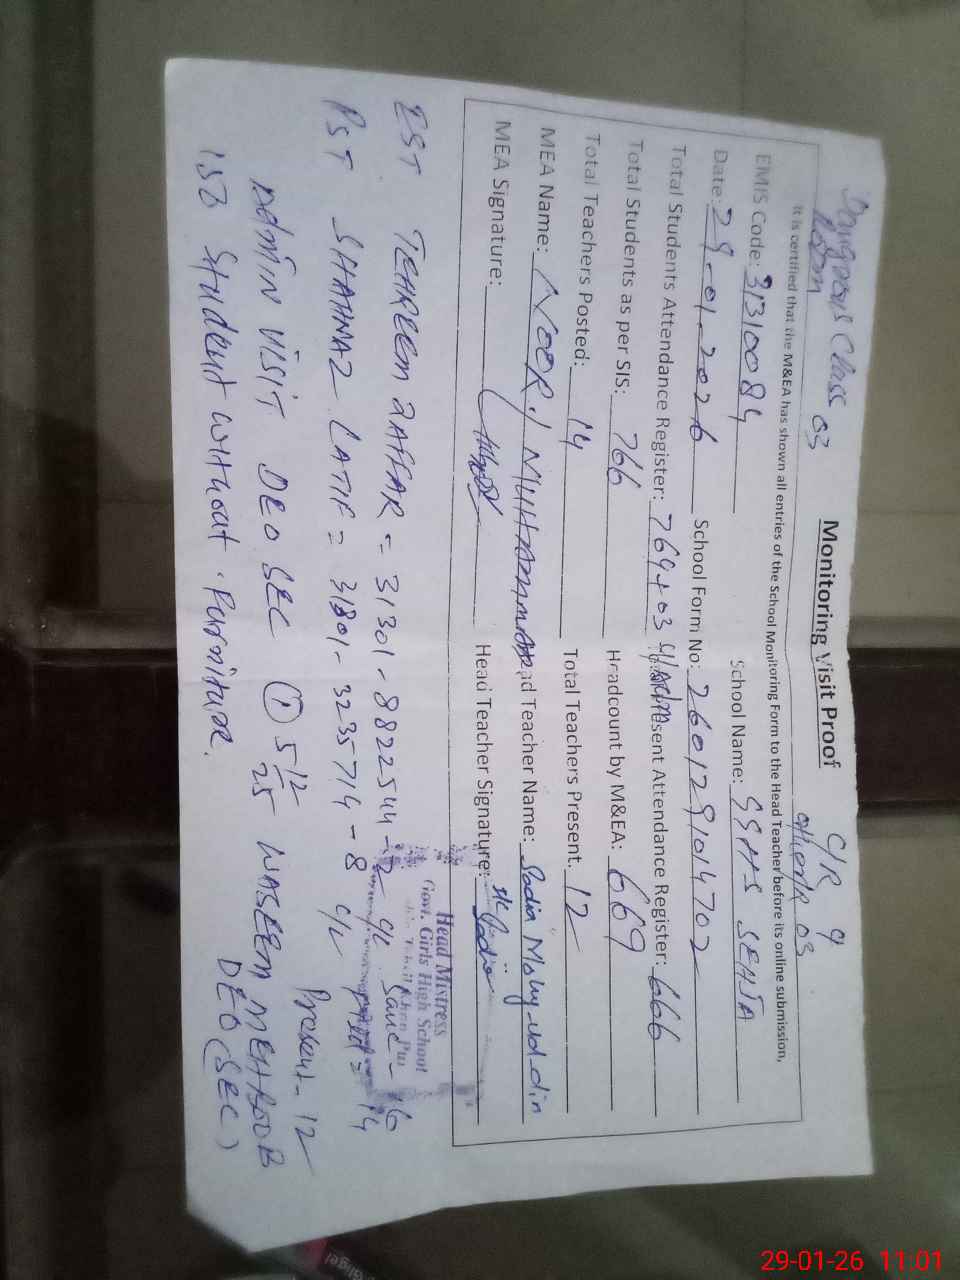 Dangerous Class 03
Room
Monitoring Visit Proof
C/R 9
other/R 03
It is certified that the M&EA has shown all entries of the School Monitoring Form to the Head Teacher before its online submission,
EMIS Code: 31310084 School Name: GGHS SEHJA
Date: 29-01-2026 School Form No: 2601291014702
Total Students Attendance Register: 764+03 Present Attendance Register: 666
Total Students as per SIS: 766 Headcount by M&EA: 669
Total Teachers Posted: 14 Total Teachers Present. 12
MEA Name: NOOR MUHAMMAD Head Teacher Name: Sadia Mohy-ud-din
MEA Signature: Head Teacher Signature: Sadia
Head Mistress
Govt. Girls High School
EST TEHREEM ZAFFAR = 31301-8822544-2 c/L Sanc- 16
PST SHAHNAZ LATIF = 31301-3235714-8 c/L 14
Present- 12
ADMIN VISIT DEO SEC ① 5 12/25 WASEEM MEHBOOB
DEO (SEC)
150 Student without Furniture.
29-01-26 11:01